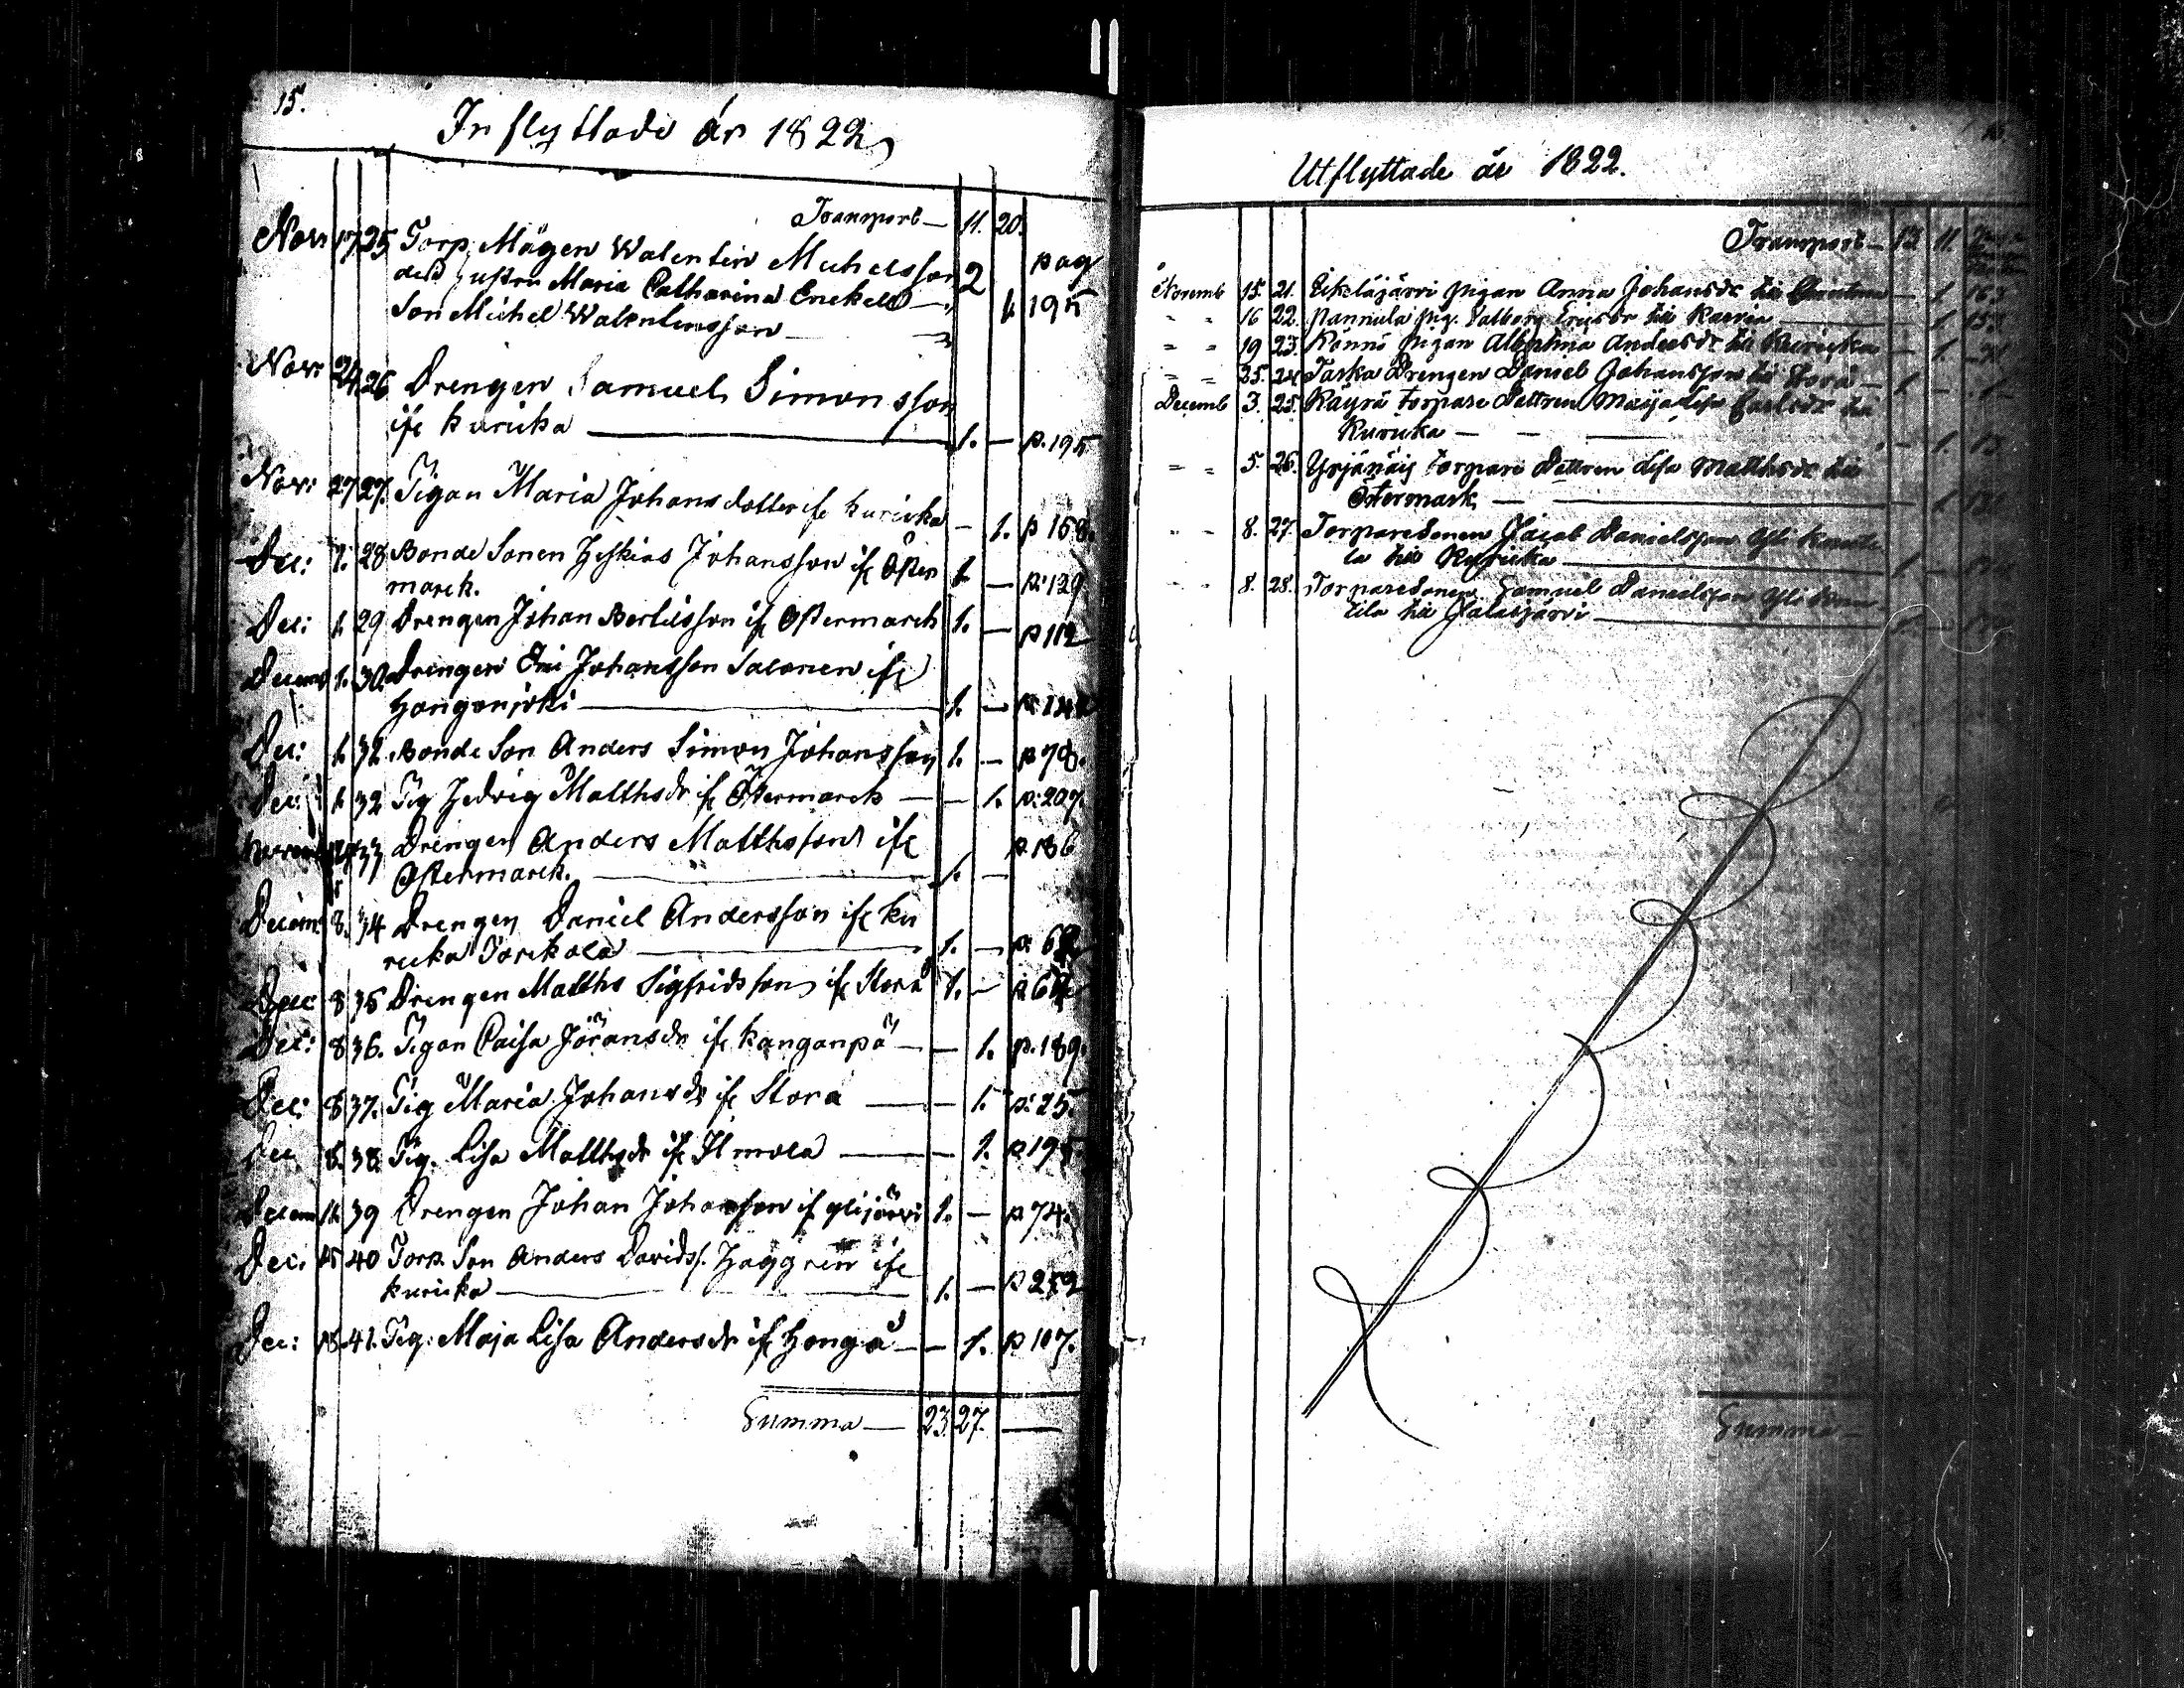 15.
Inflyttade år 1822
Transport — 11. 20.
Nov: 17 25 Torp: Mågen Walentin Michelsson 2 pag
dess hustru Maria Catharina Enekels — 1. 195
Son Michel Walentinsson —
Nov: 24 26 Drengen Samuel Simonsson
ifr Kuricka — 1. — p. 195
Nov: 27 27. Pigan Maria Johansdotter ifr Kuricka — 1. p 158.
Dec: 1. 28 Bonde Sonen Heskias Johansson ifr Öster 1. — p: 129
marck.
Dec: 1. 29 Drengen Johan Bertilsson ifr Östermarck 1. — p 112
Decem 1. 30 Drengen Johansson Salonen ifr
Hongonjoki — 1. — p.
Dec: 1. 32 Bonde Son Anders Simon Johansson 1. — p 78.
Dec: 1. 32 Pig Hedvig Matthsdr ifr Östermarck — — 1. p: 207.
33 Drengen Anders Matthsson ifr p. 186
Östermarck. — 1. —
Decem 8. 34 Drengen Daniel Andersson ifr Ku
ricka Torckola — 1. — p.
Dec 8 35 Drengen Matths Sigfridsson ifr Storå 1. — p
Dec: 8 36. Pigan Caisa Jöransdr ifr Kanganpä — — 1. p. 189.
Dec: 8 37. Pig Maria Johansdr ifr Storå — — 1. p: 25.
Dec 8. 38 Pig. Lisa Matthsdr ifr Ilmola — — 1. p 195
Decem 39 Drengen Johan Johansson ifr Ylijärvi 1. — p 74.
Dec: 15 40 Torp. Son Anders Davidss. Häggren ifr
Kuricka — 1. — p 259
Dec: 15. 41. Pig: Maja Lisa Andersdr ifr Hongo — — 1. p 107.
Summa — 23. 27. —
Utflyttade år 1822.
Transport — 13 11.
Novemb 15. 21. Eikeläjärvi pigan Anna Johansdr till — 1. 163
" " 16 22. Pannula pig. Valborg Ericsdr till — 1.
" " 19 23. Könnö pigan Albertina Andersdr till Kuricka — 1.
" " 25. 24. Taska Drengen Daniel Johansson till Storå — 1 —
Decemb 3. 25. Käyrä torpare Dottren Maija Lisa Carlsdr till
Kuricka — — — — 1. 13
" " 5. 26. Yrjänäis torpare Dottren Lisa Matthsdr till
Östermark — 1.
" " 8. 27. Torparesonen Jacob Danielsson Yli Knuuti
la till Kuricka — 1 —
" " 8. 28. Torparesonen Samuel Danielsson Yli Knuu
tila till Jalasjärvi — 1. —
Summa —